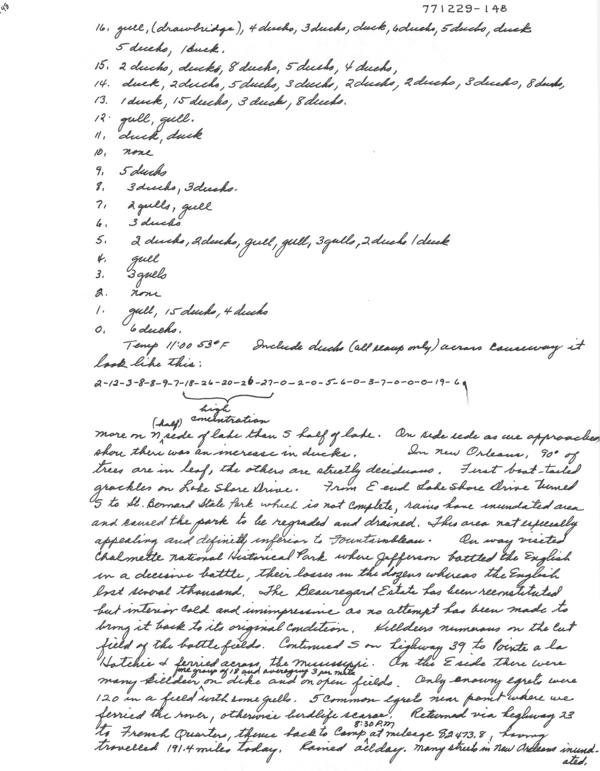 771229-148
16. gull, (drawbridge), 4 ducks, 3 ducks, duck, 6 ducks, 5 ducks, duck
5 ducks, 1 duck.
15. 2 ducks, ducks, 8 ducks, 5 ducks, 4 ducks,
14. duck, 2 ducks, 5 ducks, 3 ducks, 2 ducks, 2 ducks, 3 ducks, 8 ducks,
13. 1 duck, 15 ducks, 3 duck, 8 ducks.
12. gull, gull.
11. duck, duck
10. none
9. 5 ducks
8. 3 ducks, 3 ducks.
7. 2 gulls, gull
6. 3 ducks
5. 2 ducks, 2 ducks, gull, gull, 3 gulls, 2 ducks 1 duck
4. gull
3. 3 gulls
2. none
1. gull, 15 ducks, 4 ducks
0. 6 ducks.
Temp 11:00 53°F Include ducks (all scaup only) across causeway it
look like this:
2-12-3-8-8-9-7-18-26-20-26-27-0-2-0-5-6-0-3-7-0-0-0-19-6
high
(half) concentration
more on N side of lake than S half of lake. On side side as we approached
shore there was an increase in ducks. In New Orleans, 90% of
trees are in leaf, the others are strictly deciduous. First boat-tailed
grackles on Lake Shore Drive. From E end Lake Shore Drive turned
S to St. Bernard State Park which is not complete, rains have inundated area
and caused the park to be regraded and drained. This area not especially
appealing and definitely inferior to Fountainbleau. On way visited
Chalmette National Historical Park where Jefferson battled the English
in a decisive battle, their losses in the dozens whereas the English
lost several thousand. The Beauregard Estate has been reconstituted
but interior cold and unimpressive as no attempt has been made to
bring it back to its original condition. Killdeers numerous on the cut
field of the battle fields. Continued S on highway 39 to Pointe a la
Hatchie & ferried across the Mississippi. On the E side there were
one group of 18 and averaging 3 per mile
many killdeer on dikes and on open fields. Only snowy egrets were
120 in a field with some gulls. 5 Common egrets near point where we
ferried the river, otherwise birdlife scarce. Returned via highway 23
8:30 P.M
to French Quarters, thence back to Camp at mileage 82473.8, having
travelled 191.4 miles today. Rained all day. Many streets in New Orleans inund-
ated.